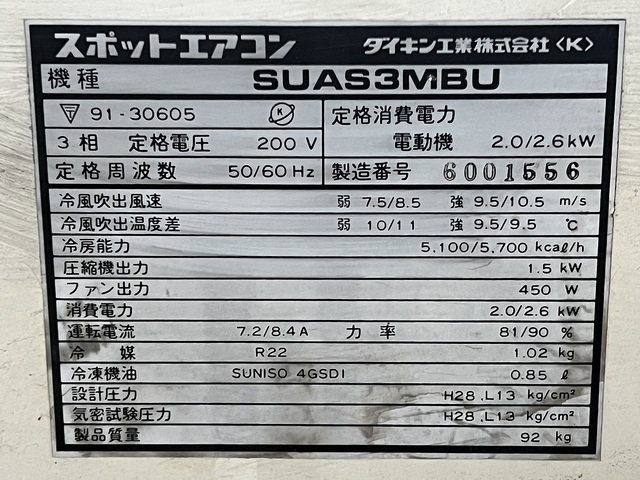 スポットエアコン ダイキン工業株式会社〈K〉
機種 SUAS3MBU
▽ 91-30605
定格消費電力
3相 定格電圧 200 V
電動機 2.0/2.6kW
定格周波数 50/60Hz
製造番号 6001556
冷風吹出風速 弱 7.5/8.5 強 9.5/10.5 m/s
冷風吹出温度差 弱 10/11 強 9.5/9.5 ℃
冷房能力 5,100/5,700 kcaℓ/h
圧縮機出力 1.5 kW
ファン出力 450 W
消費電力 2.0/2.6 kW
運転電流 7.2/8.4A 力率 81/90 %
冷媒 R22 1.02 kg
冷凍機油 SUNISO 4GSDI 0.85 ℓ
設計圧力 H28.L13 kg/cm²
気密試験圧力 H28.L13 kg/cm²
製品質量 92 kg